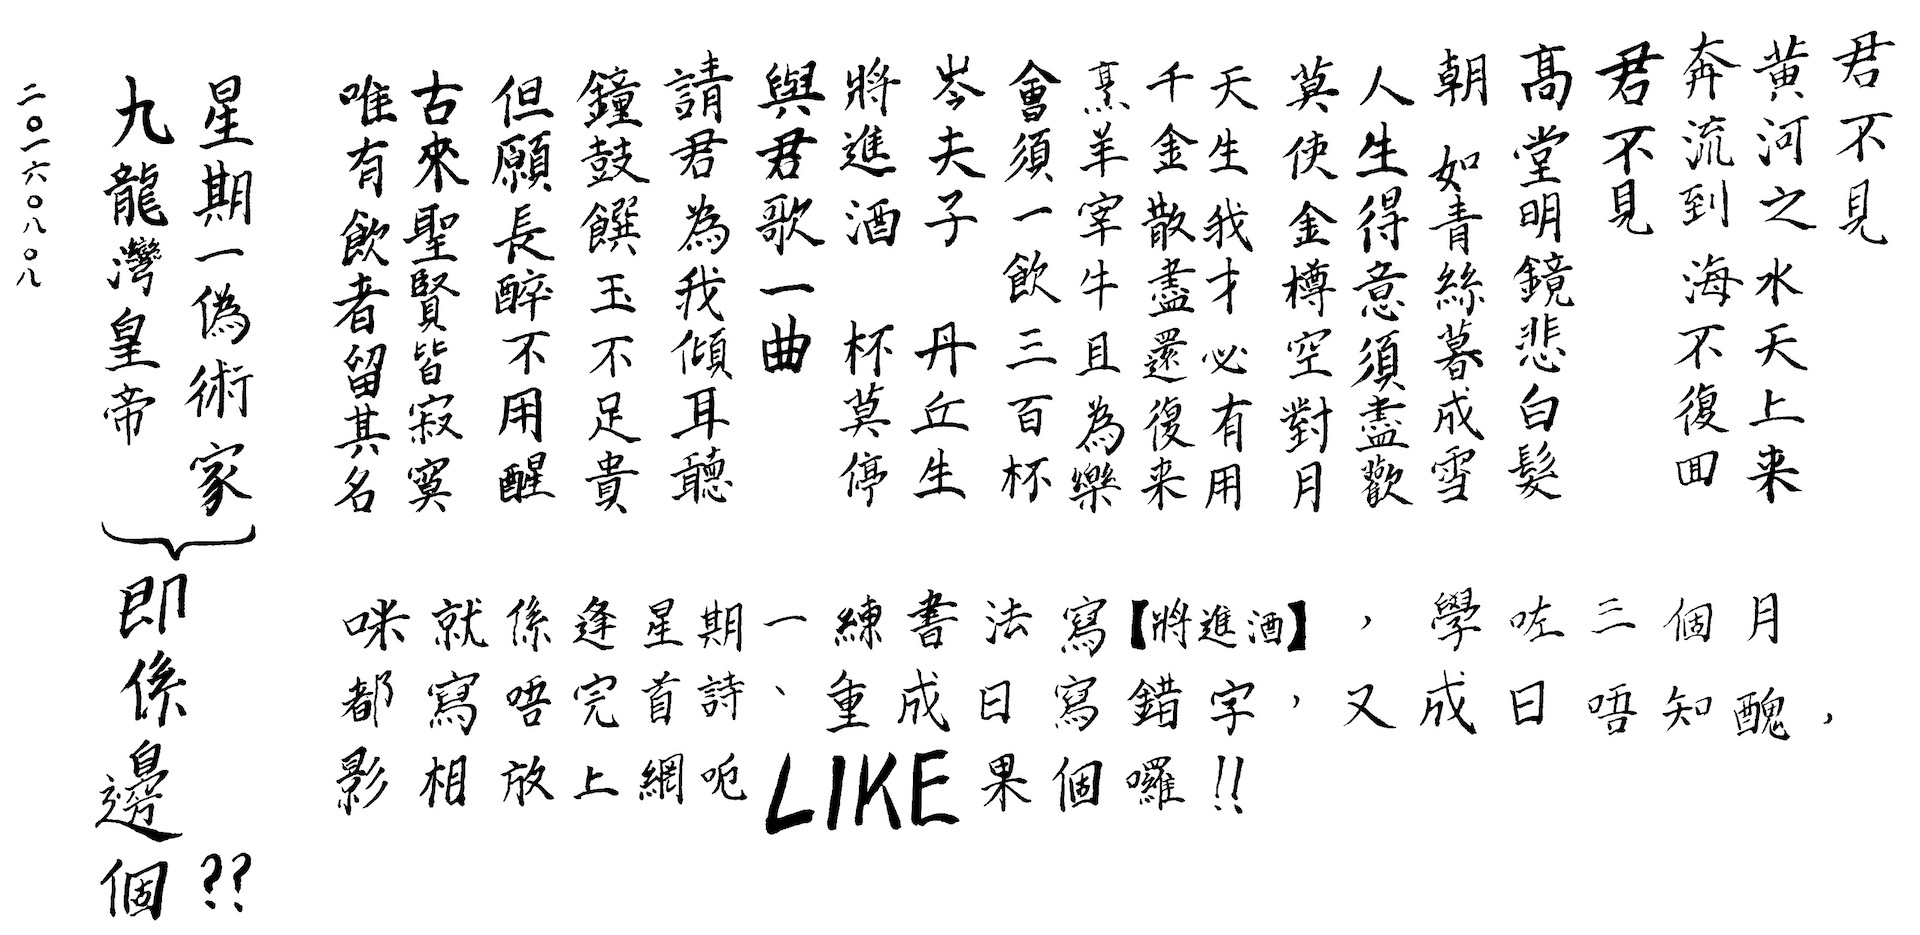 君不見
黃河之水天上来
奔流到海不復回
君不見
高堂明鏡悲白髮
朝如青絲暮成雪
人生得意須盡歡
莫使金樽空對月
天生我才必有用
千金散盡還復来
烹羊宰牛且為樂
會須一飲三百杯
岑夫子 丹丘生
將進酒 杯莫停
與君歌一曲
請君為我傾耳聽
鐘鼓饌玉不足貴
但願長醉不用醒
古來聖賢皆寂寞
唯有飲者留其名
咪就係逢星期一練書法寫【將進酒】，學咗三個月
都寫唔完首詩、重成日寫錯字，又成日唔知醜，
影相放上網呃LIKE果個囉!!
星期一偽術家
九龍灣皇帝
即係邊個??
二〇一六〇八〇八